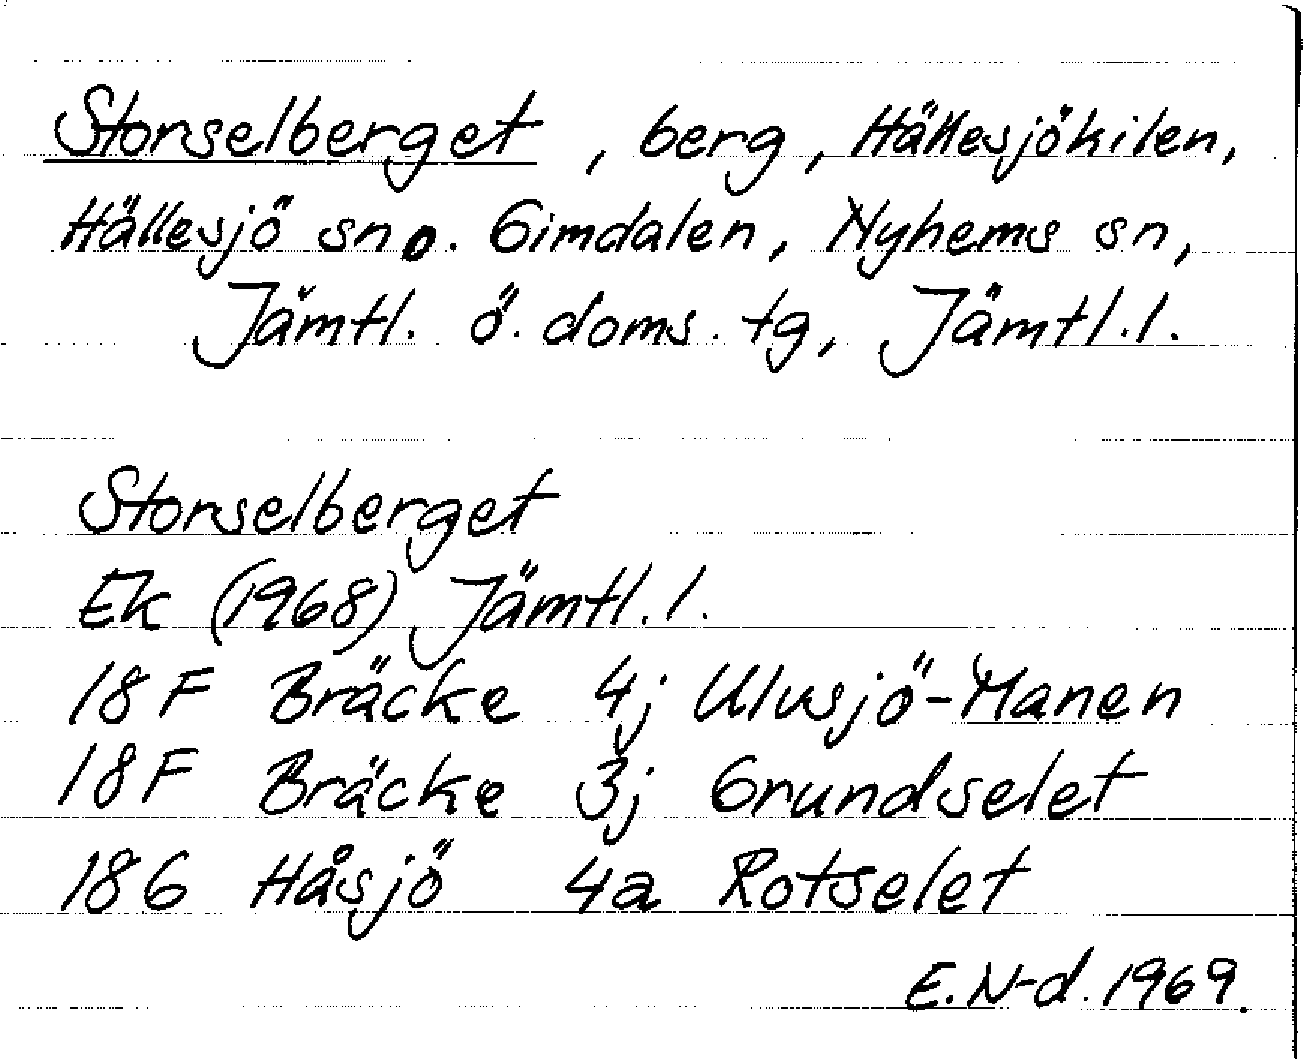 Storselberget, berg, Hällesjökilen,
Hällesjö sn o. Gimdalen, Nyhems sn,
Jämtl. ö. doms. tg, Jämtl.l.
Storselberget
Ek (1968) Jämtl.l.
18F Bräcke 4j Ulvsjö-Manen
18F Bräcke 3j Grundselet
18G Håsjö 4a Rotselet
E.N-d. 1969.